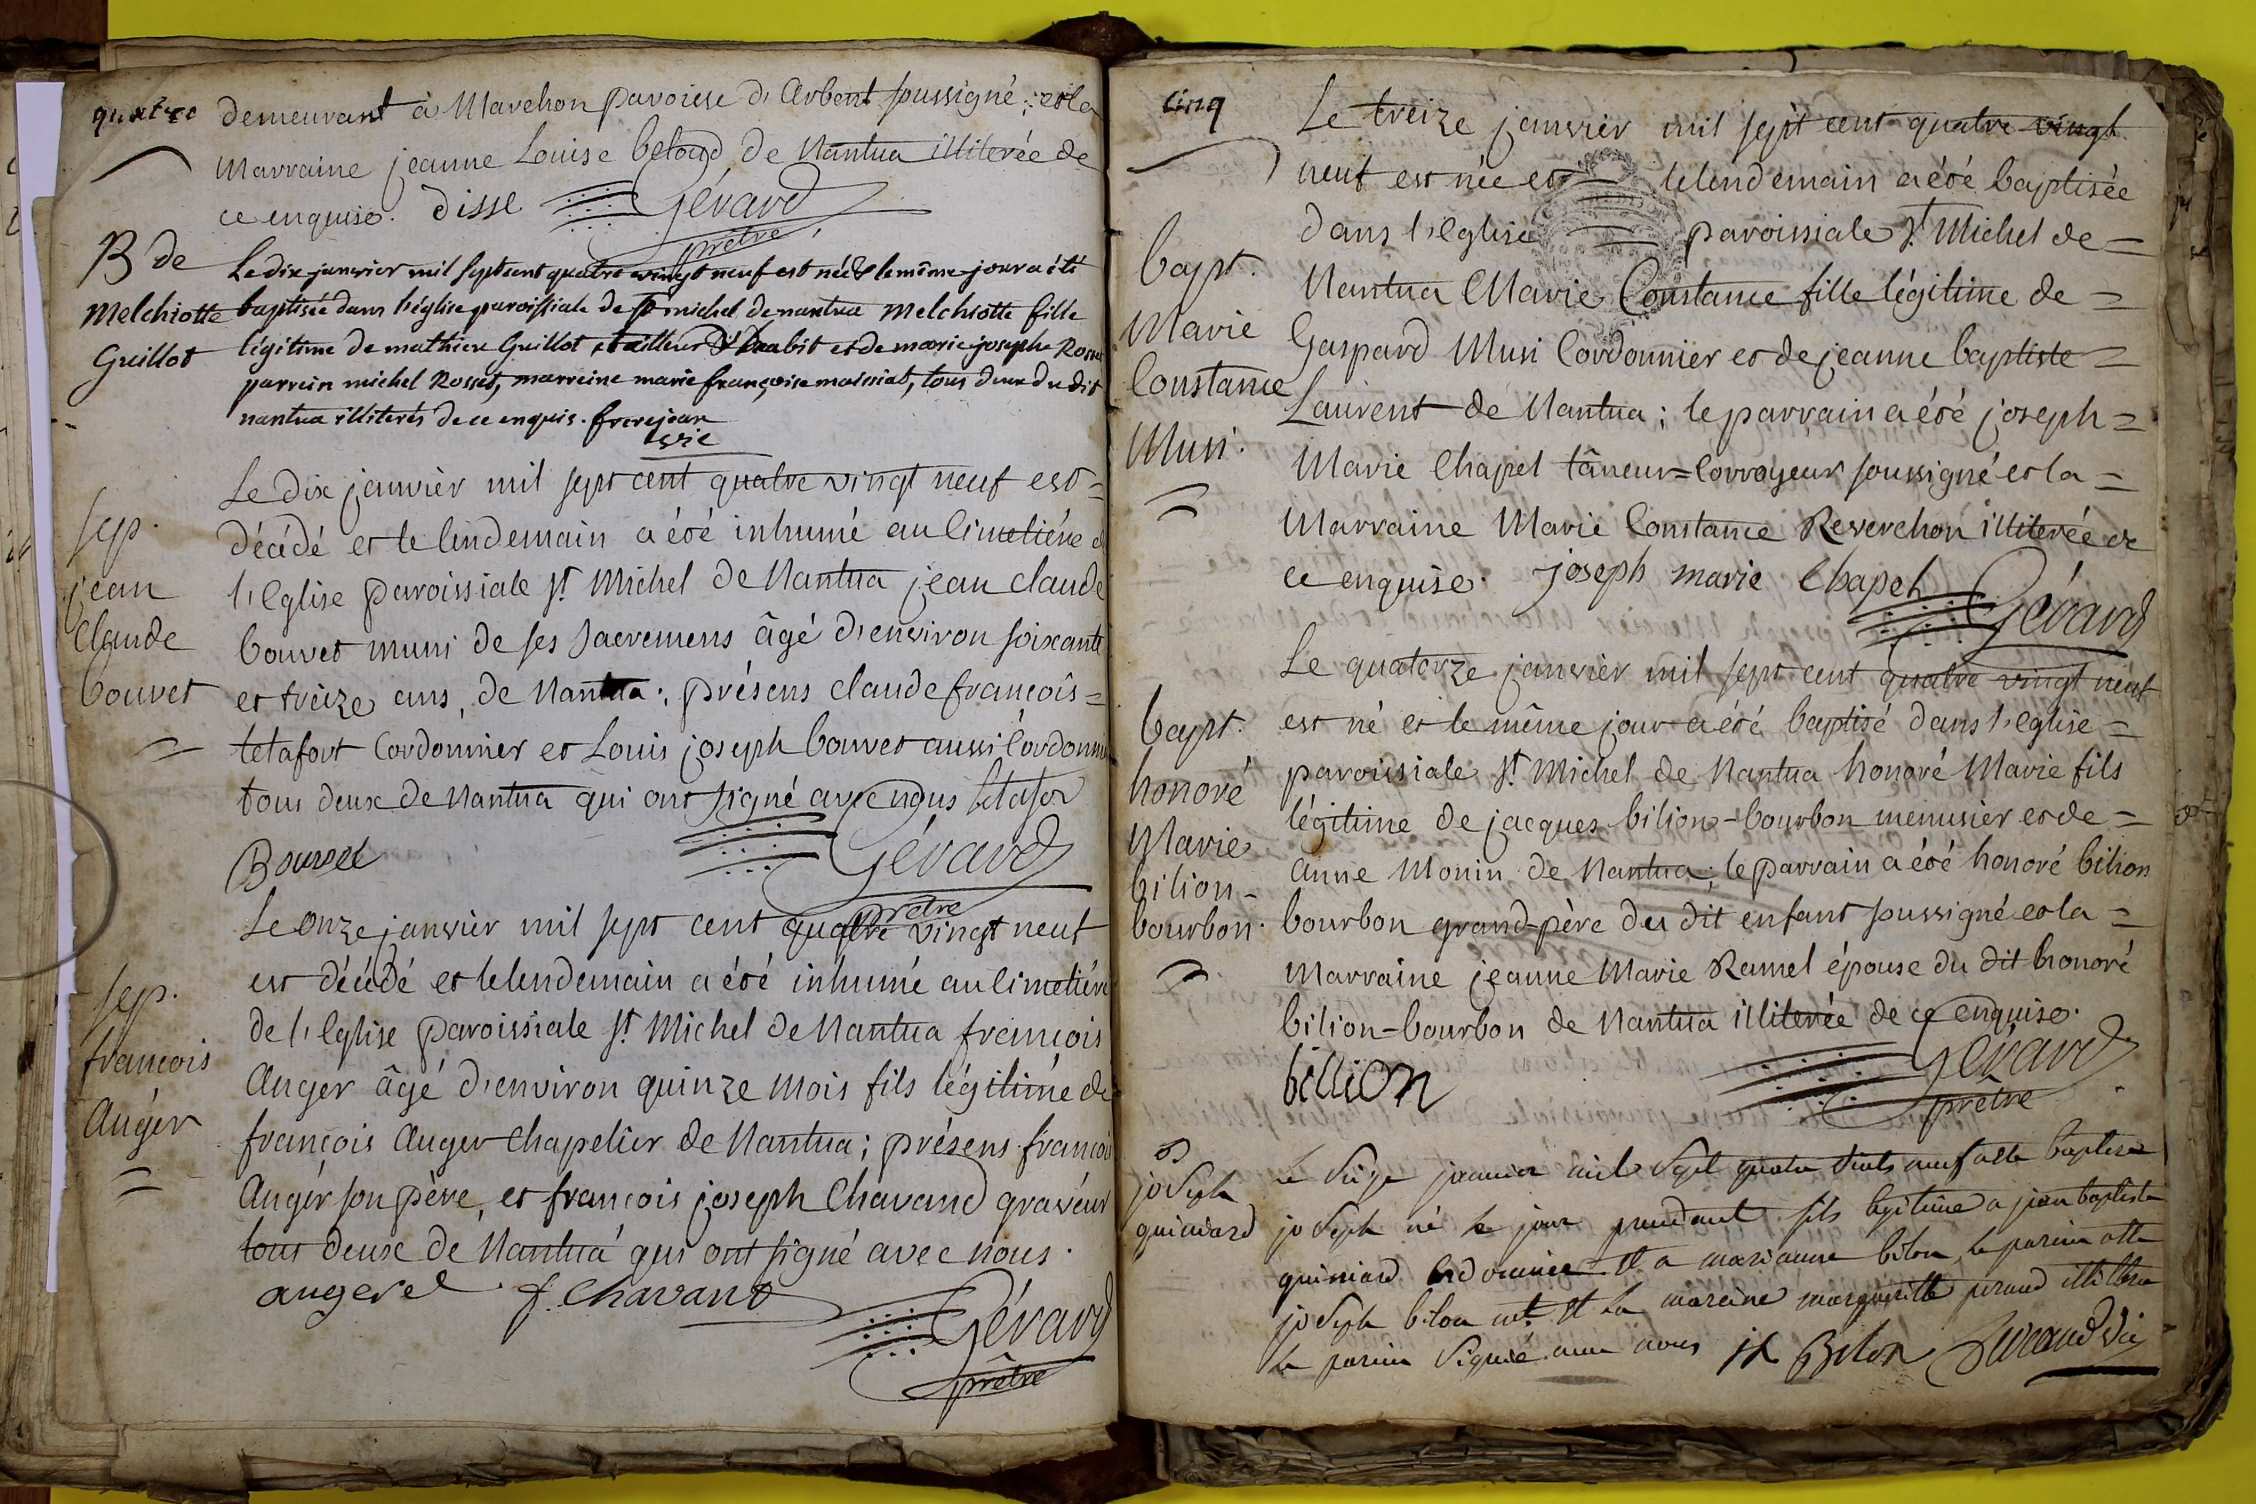 quatre
demeurant à Marchon paroisse d'Arbent soussigné; et la
Marraine jeanne Louise beloud de Nantua illiterée de
ce enquise. Disse Gérard
prêtre
B de
Melchiotte
Guillot
Le dix janvier mil sept cent quatre vingt neuf est née et le même jour a été
baptisée dans l'église paroissiale de st michel de nantua Melchiotte fille
légitime de mathieu Guillot tailleur d'habit et de marie joseph Rosset
parrein michel Rosset, marreine marie françoise maissiat, tous deux du dit
nantua illiterés de ce enquis. frerejean
vic
sep.
jean
Claude
bouvet
Le dix janvier mil sept cent quatre vingt neuf est =
décédé et le lendemain a été inhumé au Cimetiére de
l'Eglise paroissiale st. Michel de Nantua jean claude
bouvet muni de ses Sacremens âgé d'environ soixante
et treize ans, de Nantua; présens claude françois =
letafort Cordonnier et Louis joseph bouvet aussi Cordonnier
tous deux de Nantua qui ont signé avec nous letafor
Bouvet Gérard
prêtre
sep.
françois
Auger
Le onze janvier mil sept cent quatre vingt neuf
est décédé et le lendemain a été inhumé au Cimetiére
de l'Eglise paroissiale st. Michel de Nantua françois
Auger âgé d'environ quinze mois fils légitime de
françois Auger Chapelier de Nantua; présens françois
Auger son père, et françois joseph Chavand graveur
tous deux de Nantua qui ont signé avec nous.
augerel f. Chavand
Gérard
prêtre
cinq
bapt.
Marie
Constance
Musi.
Le treize janvier mil sept cent quatre vingt
neuf est née et le lendemain a été baptisée
dans l'Eglise paroissiale st. Michel de =
Nantua Marie Constance fille légitime de =
Gaspard Musi Cordonnier et de jeanne baptiste =
Laurent de Nantua; le parrain a été joseph =
Marie Chapel tâneur = Corroyeur soussigné et la =
Marraine Marie Constance Reverchon illiterée de
ce enquise. joseph marie Chapel
Gérard
bapt.
honoré
Marie
bilion-
bourbon.
Le quatorze janvier mil sept cent quatre vingt neuf
est né et le même jour a été baptisé dans l'eglise =
paroissiale st. Michel de Nantua honoré Marie fils
légitime de jacques bilion-bourbon menusier et de =
anne Monin de Nantua; le parrain a été honoré bilion
bourbon grand-père du dit enfant soussigné et la =
Marraine jeanne Marie Ramel épouse du dit honoré
bilion-bourbon de Nantua illiterée de ce enquise.
billion Gérard
prêtre
B
joseph
quiniard
Le seize janvier mil sept quatre vints neuf atte baptisé
joseph né le jour fils legitime a jean baptiste
quiniard cordonnier et a marianne bilon le parein atte
joseph bilon et la mareine margueritte illitere
le parein signé avec nous jh Bilon vic